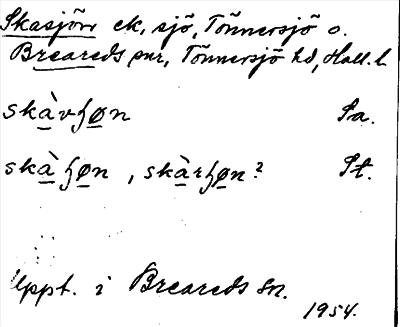 Skasjön ek, sjö, Tönnersjö o.
Breareds snr, Tönnersjö hd, Hall. l.
skàvʃøn Sa.
skàʃøn, skàrʃøn? St.
Uppt. i Breareds sn.
1954.